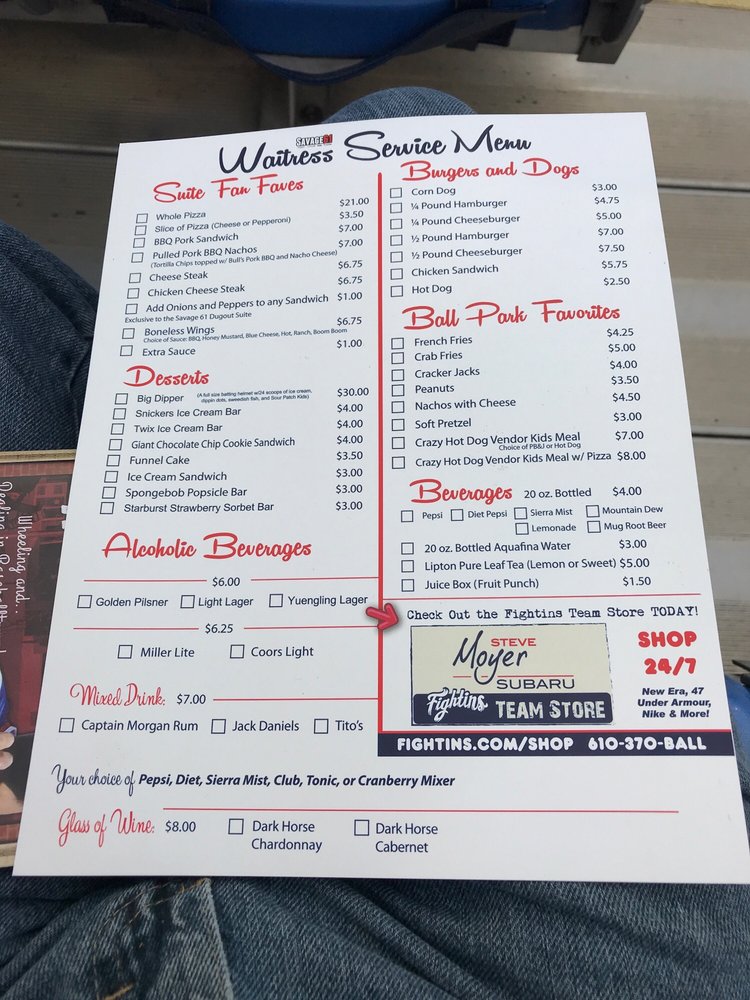 SAVAGE 61
Waitress Service Menu
Suite Fan Faves
Whole Pizza $21.00
Slice of Pizza (Cheese or Pepperoni) $3.50
BBQ Pork Sandwich $7.00
Pulled Pork BBQ Nachos $7.00
(Tortilla Chips topped w/ Bull's Pork BBQ and Nacho Cheese)
Cheese Steak $6.75
Chicken Cheese Steak $6.75
Add Onions and Peppers to any Sandwich $1.00
Exclusive to the Savage 61 Dugout Suite
Boneless Wings $6.75
Choice of Sauce: BBQ, Honey Mustard, Blue Cheese, Hot, Ranch, Boom Boom
Extra Sauce $1.00
Desserts
Big Dipper (A full size batting helmet w/24 scoops of ice cream, $30.00
dippin dots, sweedish fish, and Sour Patch Kids)
Snickers Ice Cream Bar $4.00
Twix Ice Cream Bar $4.00
Giant Chocolate Chip Cookie Sandwich $4.00
Funnel Cake $3.50
Ice Cream Sandwich $3.00
Spongebob Popsicle Bar $3.00
Starburst Strawberry Sorbet Bar $3.00
Alcoholic Beverages
$6.00
Golden Pilsner Light Lager Yuengling Lager
$6.25
Miller Lite Coors Light
Mixed Drink: $7.00
Captain Morgan Rum Jack Daniels Tito's
Your choice of Pepsi, Diet, Sierra Mist, Club, Tonic, or Cranberry Mixer
Glass of Wine: $8.00 Dark Horse Chardonnay Dark Horse Cabernet
Burgers and Dogs
Corn Dog $3.00
¼ Pound Hamburger $4.75
¼ Pound Cheeseburger $5.00
½ Pound Hamburger $7.00
½ Pound Cheeseburger $7.50
Chicken Sandwich $5.75
Hot Dog $2.50
Ball Park Favorites
French Fries $4.25
Crab Fries $5.00
Cracker Jacks $4.00
Peanuts $3.50
Nachos with Cheese $4.50
Soft Pretzel $3.00
Crazy Hot Dog Vendor Kids Meal $7.00
Choice of PB&J or Hot Dog
Crazy Hot Dog Vendor Kids Meal w/ Pizza $8.00
Beverages 20 oz. Bottled $4.00
Pepsi Diet Pepsi Sierra Mist Mountain Dew
Lemonade Mug Root Beer
20 oz. Bottled Aquafina Water $3.00
Lipton Pure Leaf Tea (Lemon or Sweet) $5.00
Juice Box (Fruit Punch) $1.50
Check Out the Fightins Team Store TODAY!
STEVE
Moyer
SUBARU
Fightins TEAM STORE
SHOP
24/7
New Era, 47
Under Armour,
Nike & More!
FIGHTINS.COM/SHOP 610-370-BALL
Wheeling and...